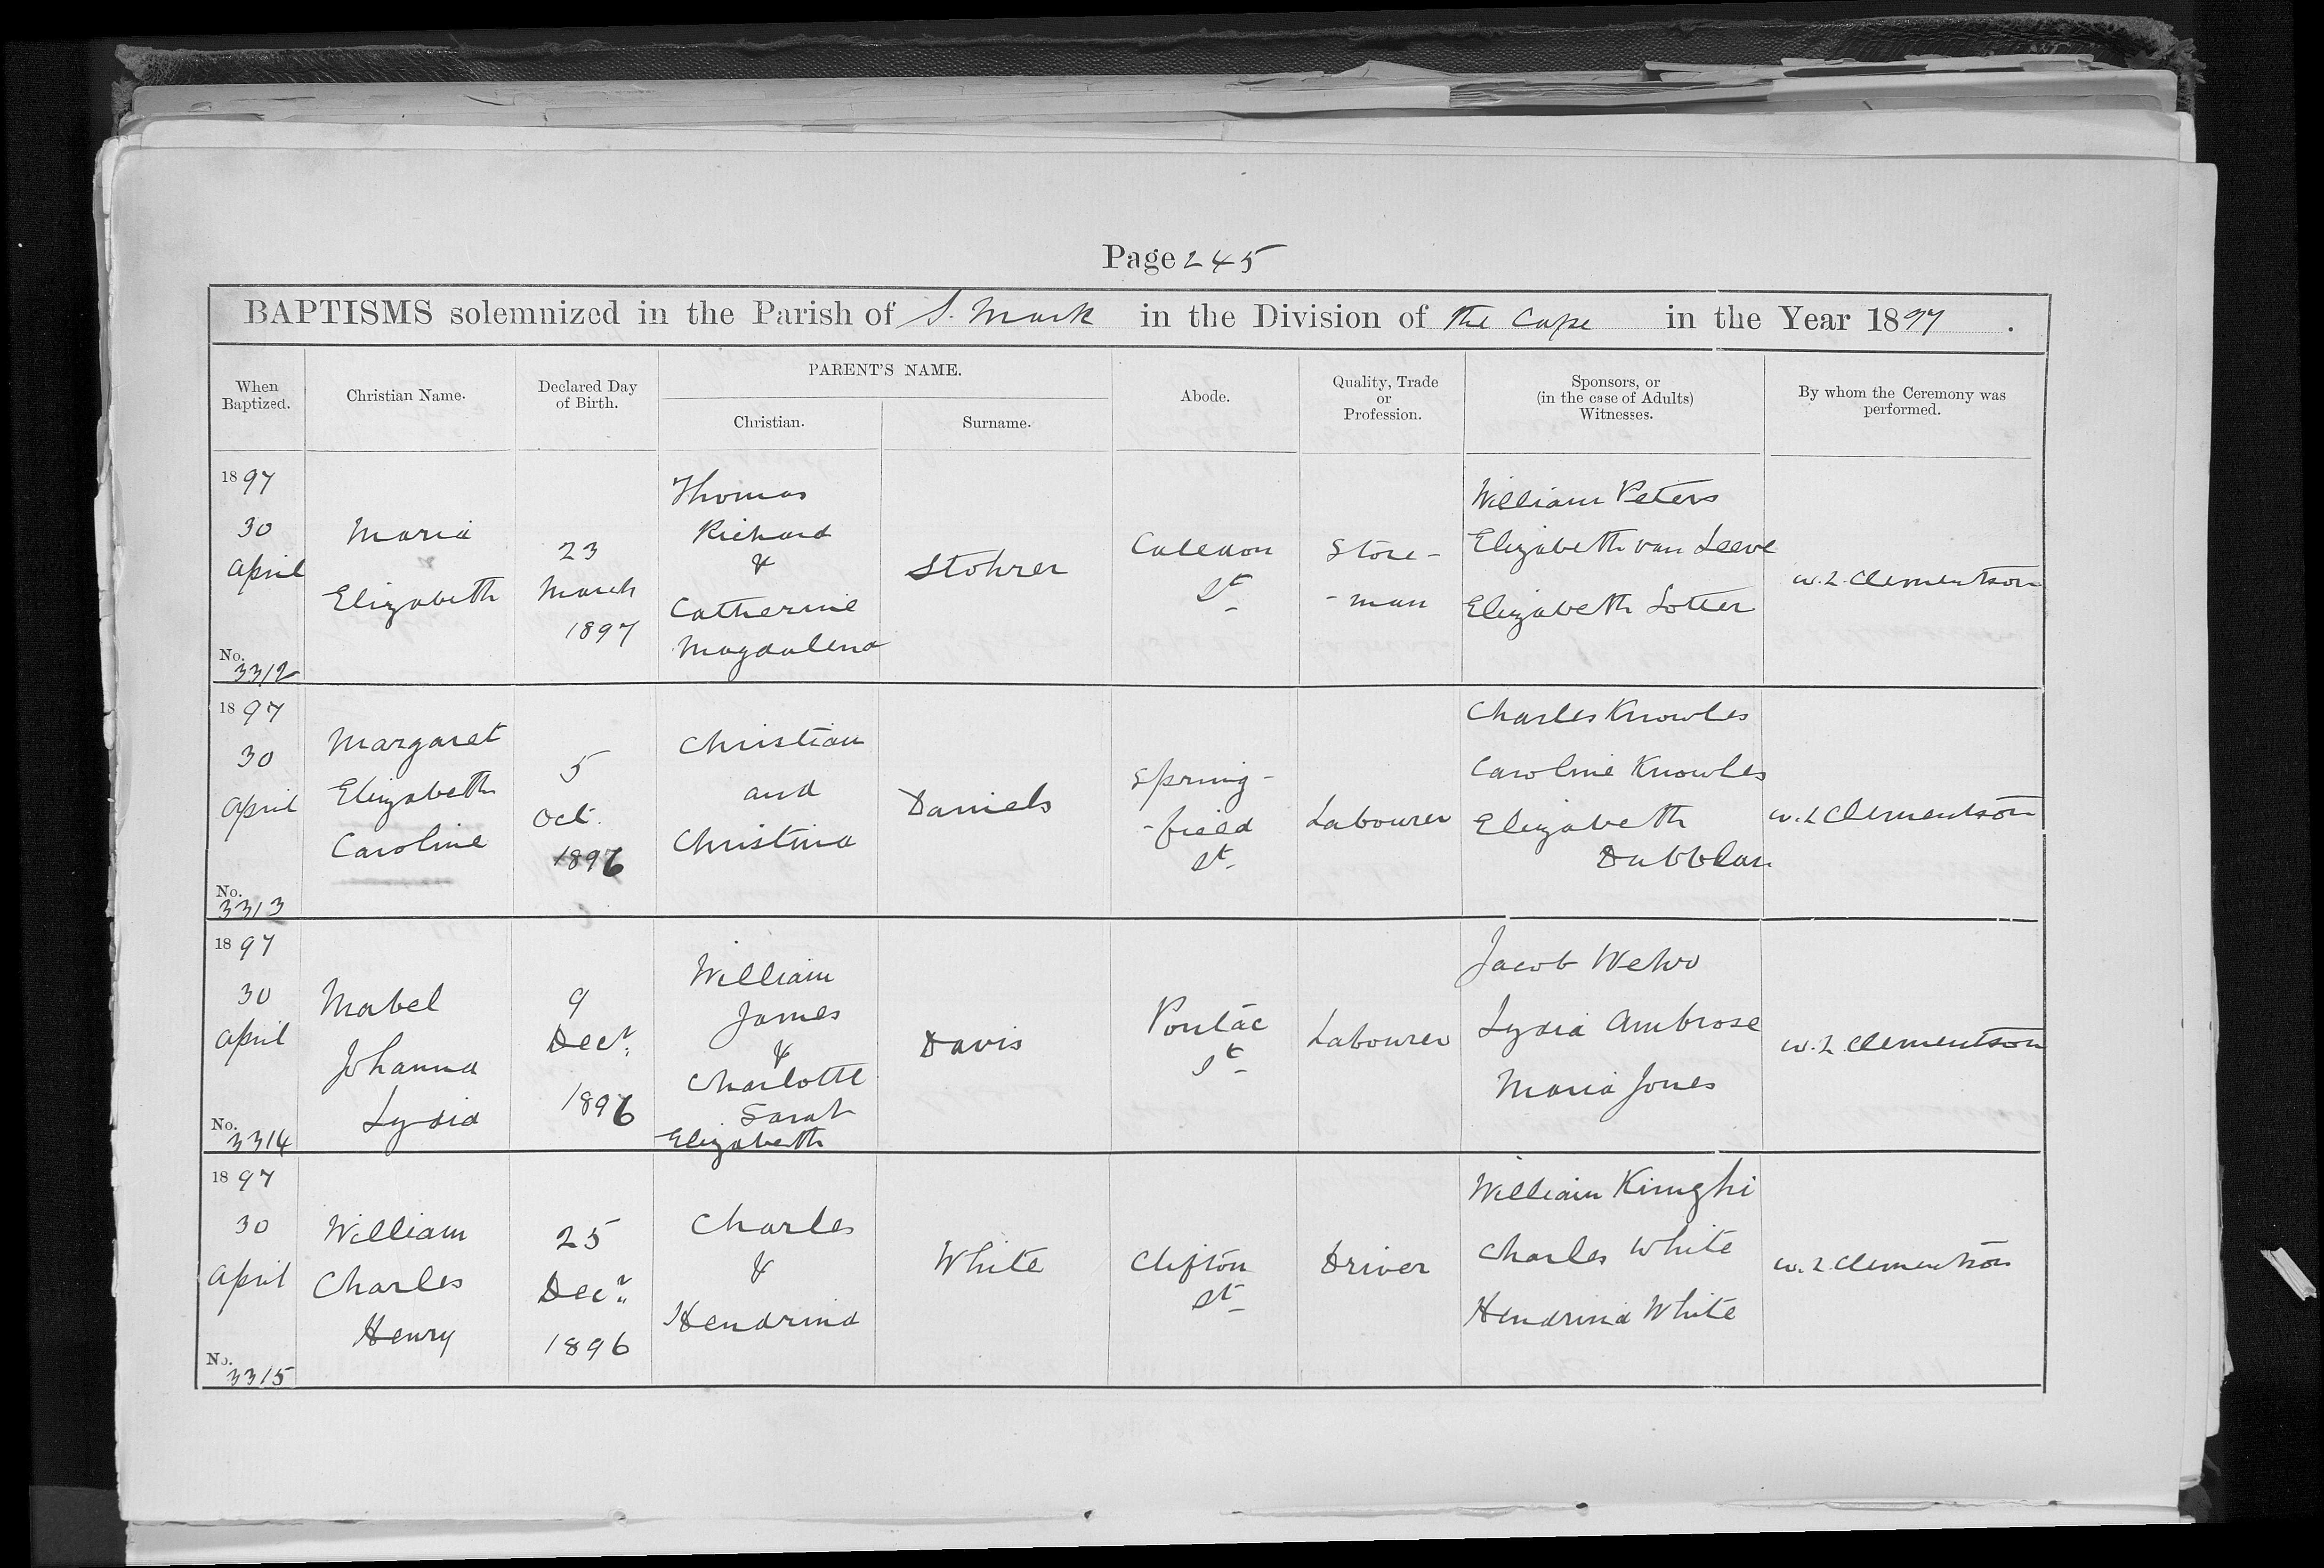 Page 245
BAPTISMS solemnized in the Parish of S. Mark in the Division of the Cape in the Year 1897.
PARENT'S NAME.
When Baptized. Christian Name. Declared Day of Birth. Christian. Surname. Abode. Quality, Trade or Profession. Sponsors, or (in the case of Adults) Witnesses. By whom the Ceremony was performed.
1897
30
April
No.
3312
Maria
Elizabeth
23
March
1897
Thomas
Richard
&
Catherine
Magdalena
Stohrer
Caledon
St
Store-
-man
William Peters
Elizabeth van Leeve
Elizabeth Lotter
W. L. Clementson
1897
30
April
No.
3313
Margaret
Elizabeth
Caroline
5
Oct.
1896
Christian
and
Christina
Daniels
Spring-
-field
St.
Labourer
Charles Knowles
Caroline Knowles
Elizabeth
W. L Clementson
1897
30
April
No.
3314
Mabel
Johanna
Lydia
9
Decr.
1896
William
James
&
Charlotte
Sarah
Elizabeth
Davis
Pontac
St
Labourer
Jacob
Lydia Ambrose
Maria Jones
W. L. Clementson
1897
30
April
No.
3315
William
Charles
Henry
25
Decr.
1896
Charles
&
Hendrina
White
Clifton
St
Driver
William
Charles White
Hendrina White
W. L. Clementson